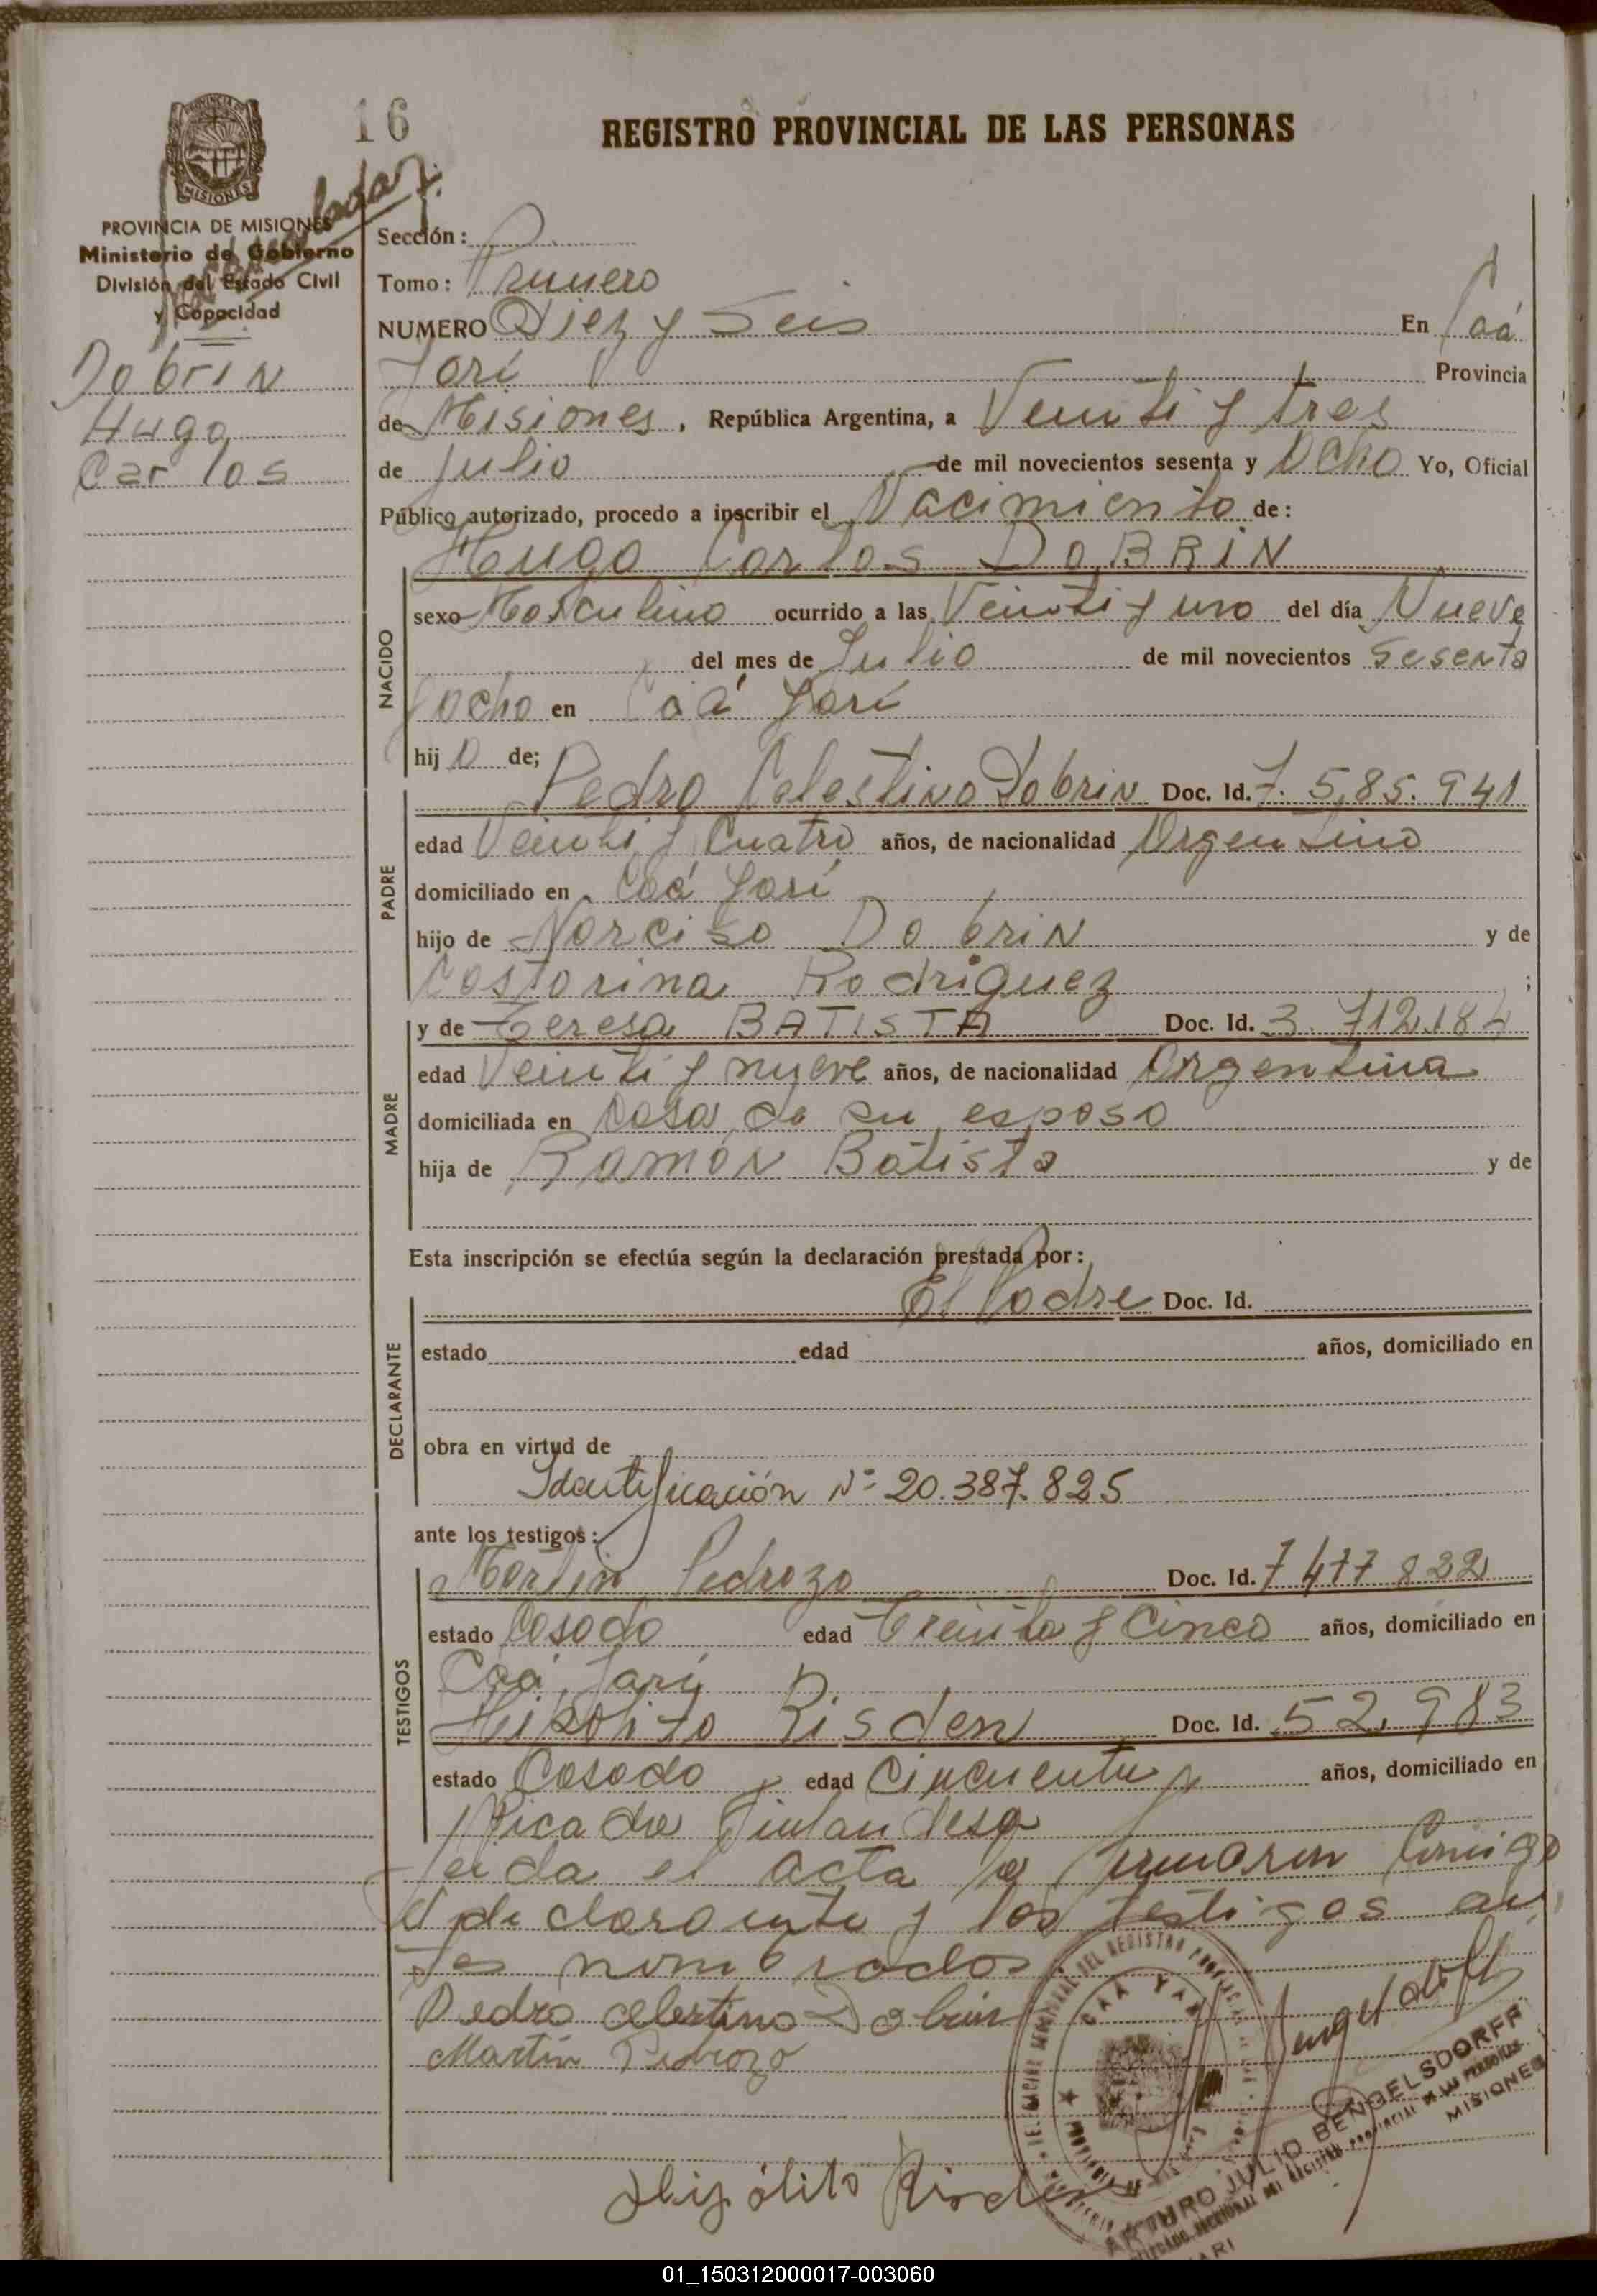 16
REGISTRO PROVINCIAL DE LAS PERSONAS
MISIONES
PROVINCIA DE MISIONES
Ministerio de Gobierno
División del Estado Civil
y Capacidad
Dobrin
Hugo
Carlos
Sección:
Tomo: Primero
NUMERO Diez y Seis En Caá
Yarí Provincia
de Misiones, República Argentina, a Veinti y tres
de Julio de mil novecientos sesenta y Ocho Yo, Oficial
Público autorizado, procedo a inscribir el Nacimiento de:
Hugo Carlos DoBRiN
NACIDO
sexo Masculino ocurrido a las Veinti y uno del día Nueve
del mes de Julio de mil novecientos Sesenta
y ocho en Caá Yarí
hijo de;
PADRE
Pedro Celestino Dobrin Doc. Id. 7.585.941
edad Veinti y Cuatro años, de nacionalidad Argentino
domiciliado en Caá Yarí
hijo de Narciso Dobrin y de
Castorina Rodriguez ;
MADRE
y de Teresa BATISTA Doc. Id. 3.712.184
edad Veinti y nueve años, de nacionalidad Argentina
domiciliada en Casa de su esposo
hija de Ramón Batista y de
Esta inscripción se efectúa según la declaración prestada por:
DECLARANTE
El Padre Doc. Id.
estado edad años, domiciliado en
obra en virtud de
Identificación Nº 20.387.825
ante los testigos:
TESTIGOS
Martin Pedrozo Doc. Id. 7 477 822
estado Casado edad Treinta y Cinco años, domiciliado en
Caá Yarí
Hipolito Risden Doc. Id. 52.983
estado Casado edad Cincuenta años, domiciliado en
Picada Finlandesa
Leida el acta la firmaron Conmigo
el declarante y los testigos an
tes nombrados
Pedro Celestino Dobrin
Martín Pedrozo
Hipólito Risden
CAA YARI
ARTURO JULIO BENGELSDORFF
MISIONES
01_150312000017-003060